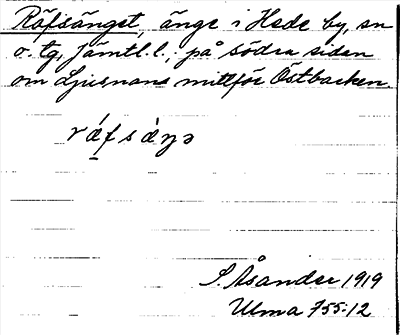 Räfsänget, änge i Hede by, sn
o. tg, Jämtl. l., på södra sidan
om Ljusnans mittför Östbacken.
S. Åsander 1919
Ulma 755:12